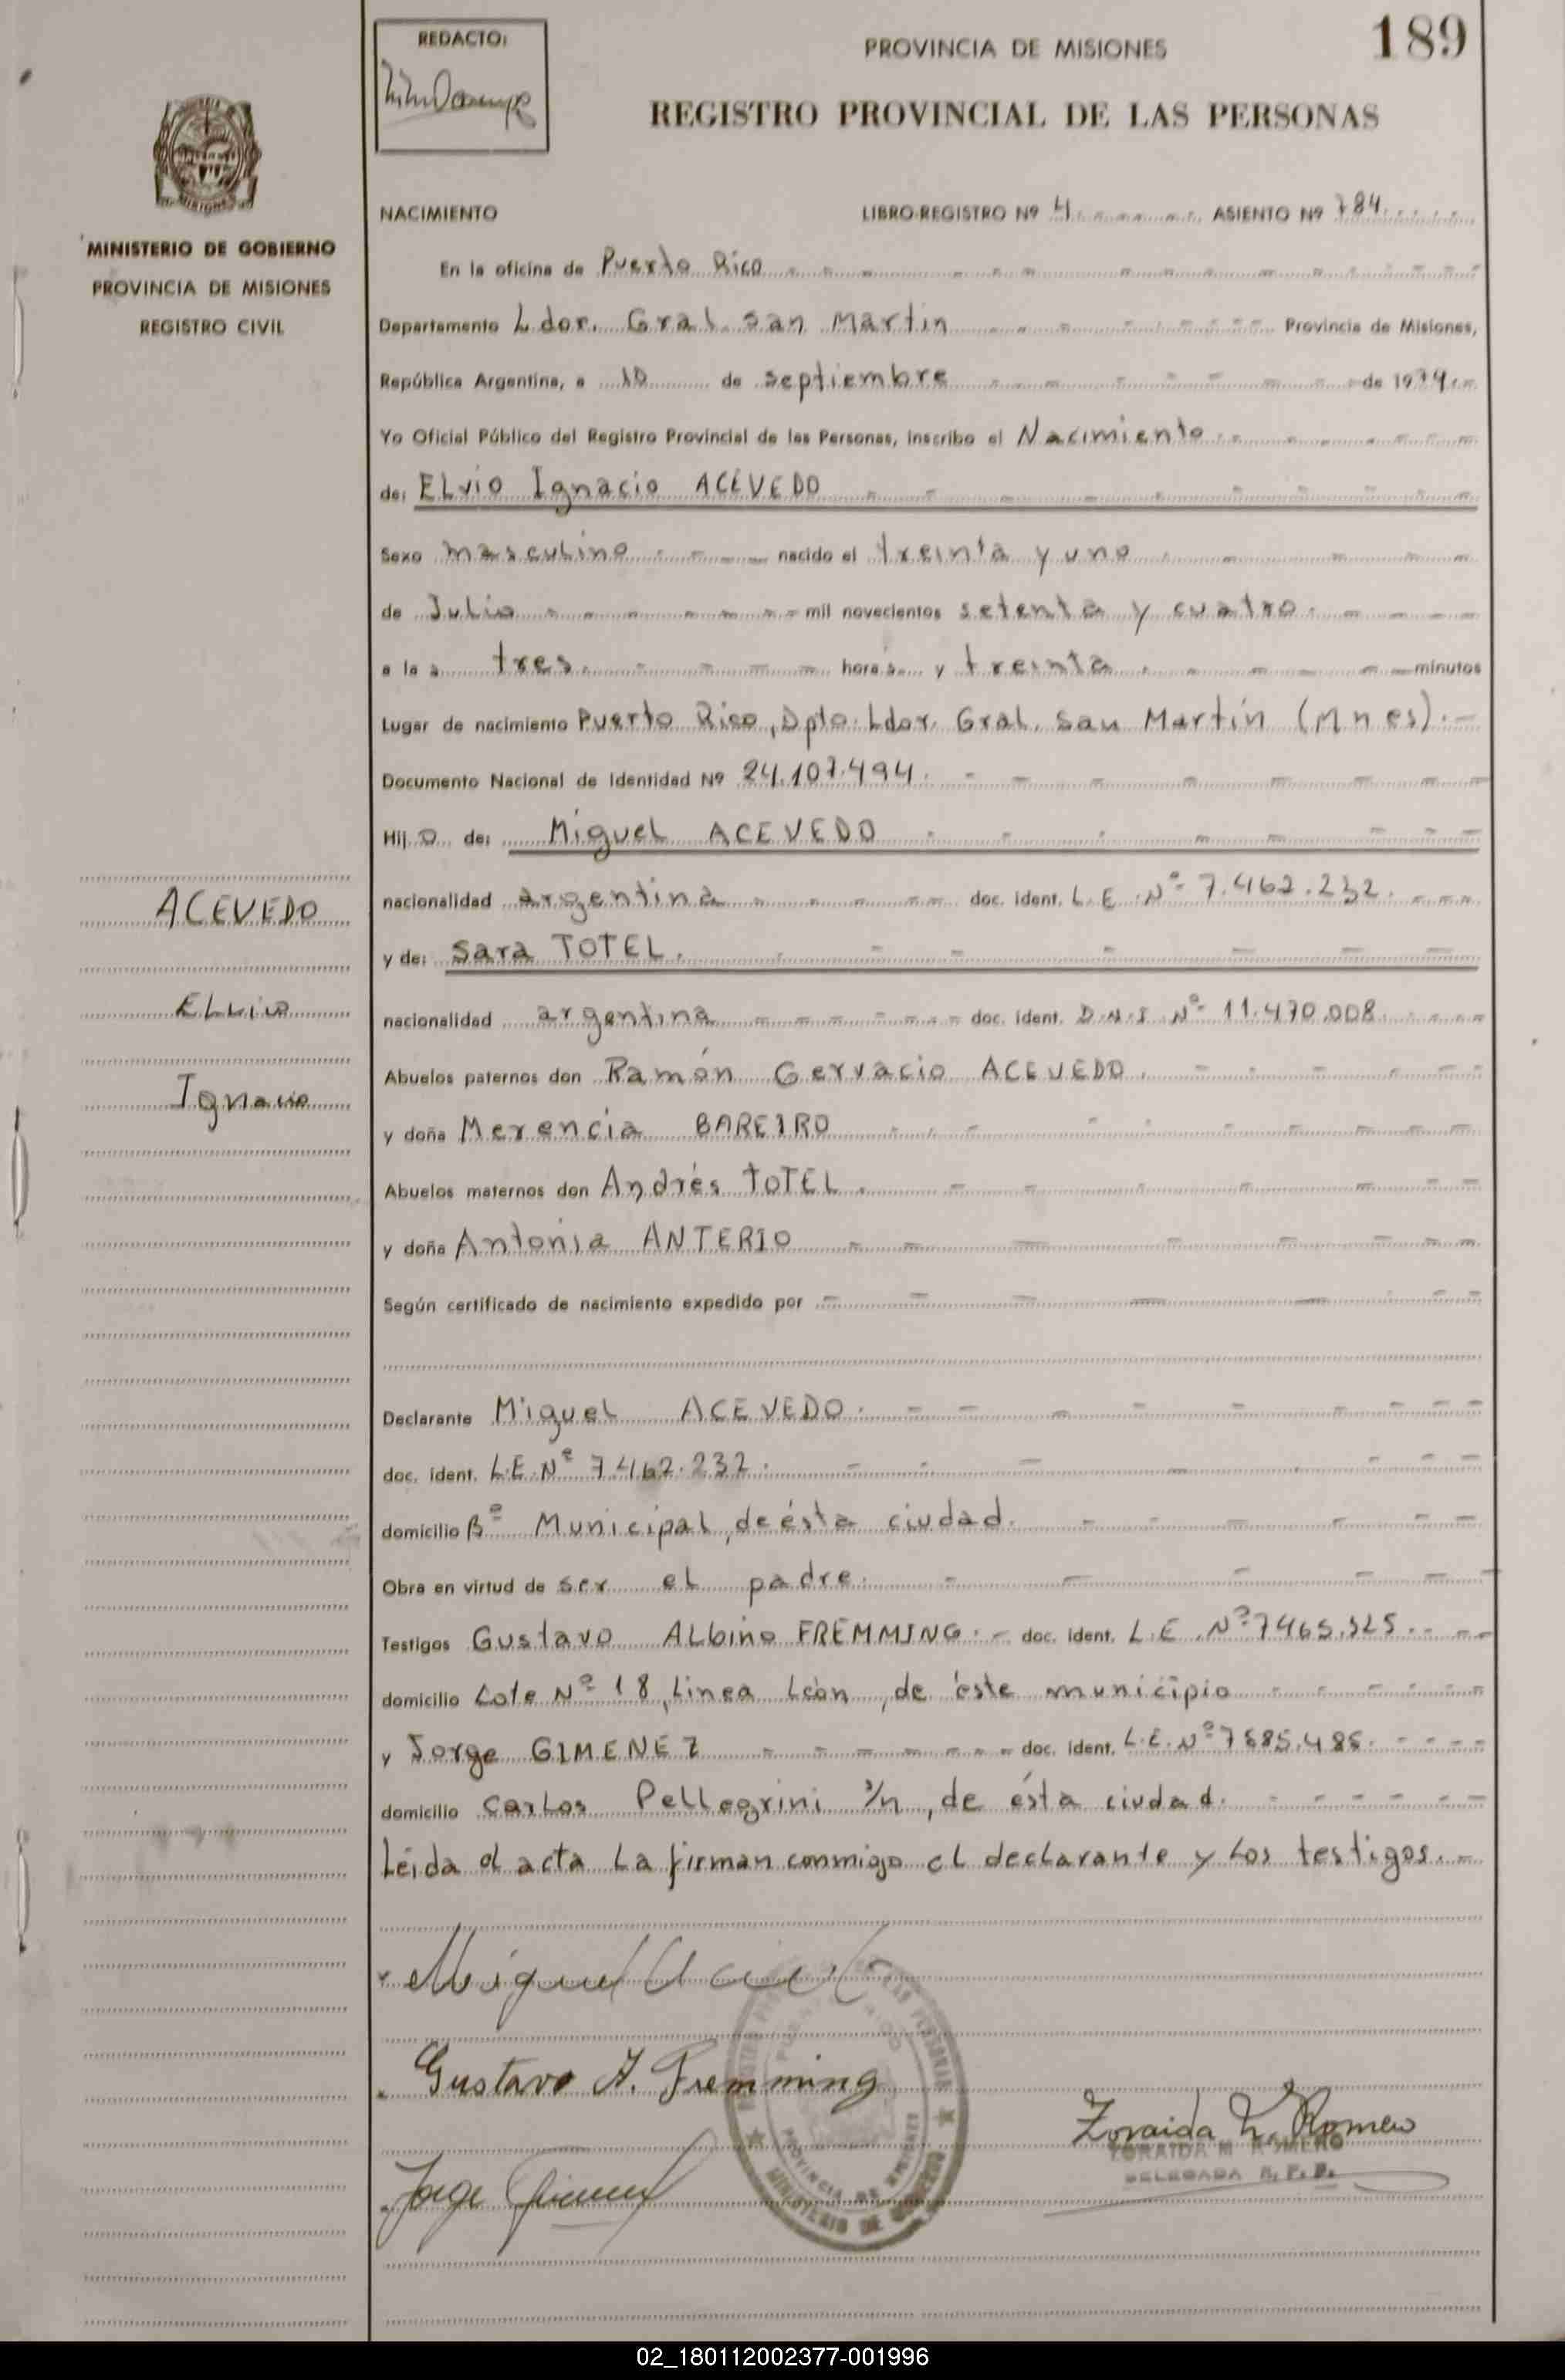 189
REDACTO:
PROVINCIA DE MISIONES
REGISTRO PROVINCIAL DE LAS PERSONAS
MISIONES
MINISTERIO DE GOBIERNO
PROVINCIA DE MISIONES
REGISTRO CIVIL
NACIMIENTO LIBRO-REGISTRO Nº 4 ASIENTO Nº 784
En la oficina de Puerto Rico
Departamento Ldor. Gral. San Martin Provincia de Misiones,
República Argentina, a 10 de septiembre de 1974
Yo Oficial Público del Registro Provincial de las Personas, inscribo el Nacimiento
de: ELvio Ignacio ACEVEDO
Sexo masculino nacido el treinta y uno
de Julio mil novecientos setenta y cuatro
a la s tres horas y treinta minutos
Lugar de nacimiento Puerto Rico, Dpto. Ldor. Gral. San Martín (Mnes).-
Documento Nacional de Identidad Nº 24.107.494.
Hij o de: Miguel ACEVEDO
nacionalidad argentina doc. ident. L.E. Nº 7.462.232.
y de: Sara TOTEL.
nacionalidad argentina doc. ident. D.N.I. Nº 11.470.008
Abuelos paternos don Ramón Gervacio ACEVEDO.
y doña Merencia BAREIRO
Abuelos maternos don Andrés TOTEL.
y doña Antonia ANTERIO
Según certificado de nacimiento expedido por
Declarante Miguel ACEVEDO.
doc. ident. L.E. Nº 7.462.232.
domicilio Bº Municipal, de ésta ciudad.
Obra en virtud de ser el padre.
Testigos Gustavo ALbino FREMMING.- doc. ident. L.E. Nº 7465.525.
domicilio Lote Nº 18, Linea León, de éste municipio
y Jorge GIMENEZ doc. ident. L.E. Nº 7585.485.
domicilio Carlos Pellegrini s/n, de ésta ciudad.
Leída el acta la firman conmigo el declarante y los testigos.-
ACEVEDO
ELvio
Ignacio
Miguel
Gustavo A. Fremming
Jorge Gimenez
Zoraida M. Romero
ZORAIDA M. ROMERO
DELEGADA R.P.P.
PROVINCIA DE MISIONES
MINISTERIO DE GOBIERNO
02_180112002377-001996